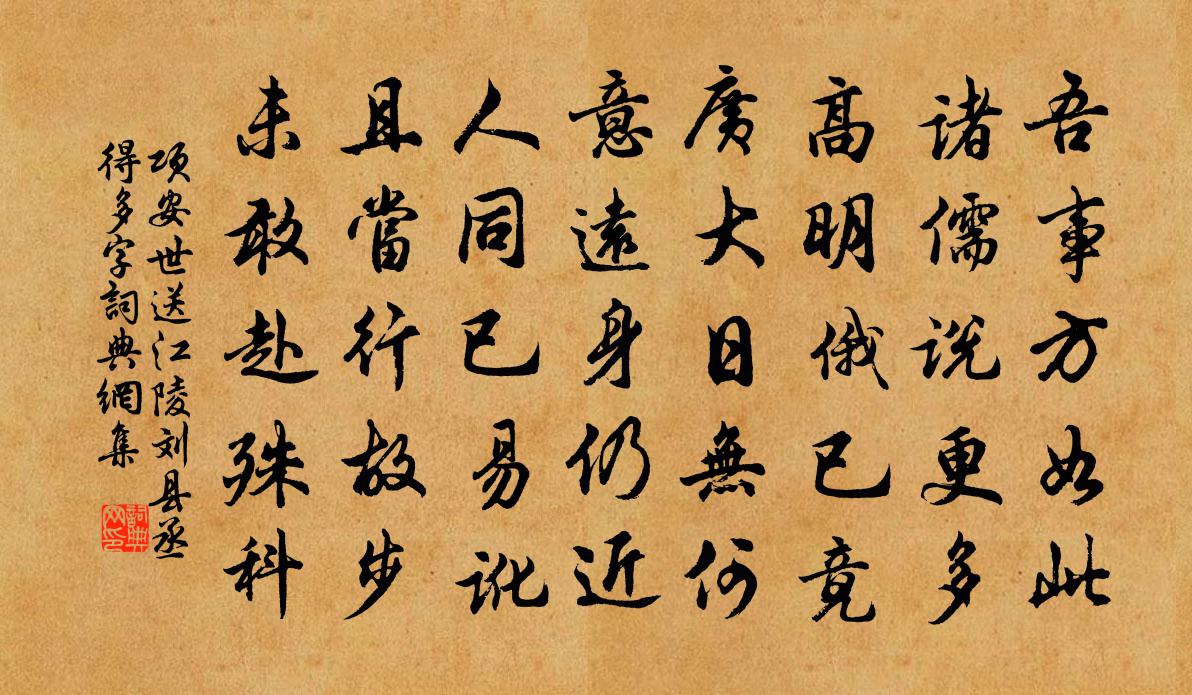 吾事方如此
諸儒説更多
高明俄已竟
廣大日無何
意遠身仍近
人同已易訛
且當行故步
未敢赴殊科
项安世送江陵刘县丞
得多字詞典網集
詞典网印